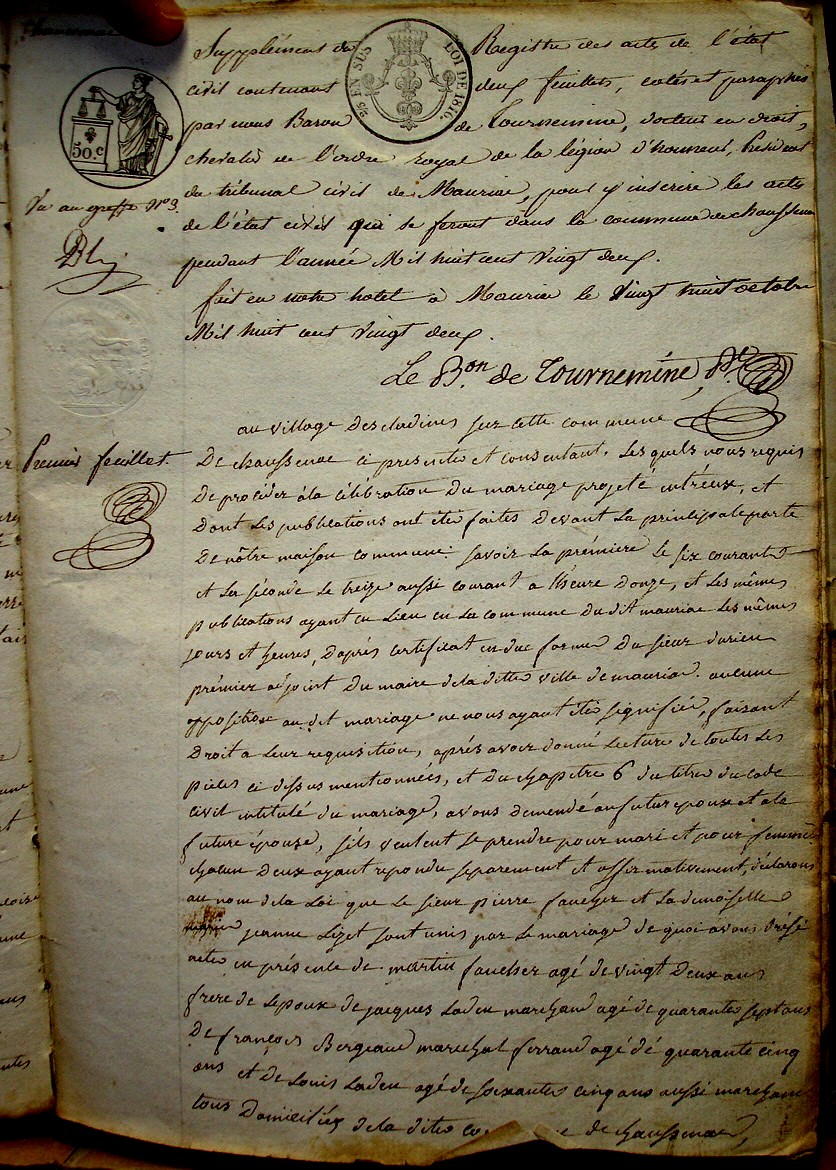 Supplément du Registre des actes de l'état
civil contenant deux feuillets, cotés et paraphés
par nous Baron de Tournemine, docteur en droit,
chevalier de l'ordre royal de la légion d'honneur, Président
du tribunal civil de Mauriac, pour y inscrire les actes
de l'état civil qui se feront dans la commune de chaussenac
pendant l'année Mil huit cent vingt deux.
fait en notre hotel à Mauriac le vingt huit octobre
Mil huit cent vingt deux.
Le Bon. de Tournemine, Pt.
25 EN SUS
LOI DE 1816.
50.c
Vu au greffe No 3.
Premier feuillet.
au village des cludines sur cette commune
De chaussenac ci presente et consentant. Les quels nous requis
De procéder à la célébration du mariage projeté entréux, et
Dont Les publications ont étéz faites Devant La principale porte
De nôtre maison commune: savoir La prémiere Le six courant
et La séconde Le treize aussi courant a L'heure Donze, et Les mêmes
publications ayant eu Lieu en La commune Du dit mauriac Les mêmes
jours et heures, D'aprés certificat en due forme Du sieur Durieu
prémier adjoint Du maire de la ditte ville de mauriac. aucune
opposition au dit mariage ne nous ayant étéz signifiéé, faisant
Droit a Leur requisition, aprés avoir donné Lecture de toutes Les
pieces ci dessus mentionnées, et Du chapitre 6 du titre du code
civil intitulé du mariage, avons demendé au futur epoux et a la
future épouse, s'ils veulent se prendre pour mari et pour femme
chacun Deux ayant repondu separement et affirmativement, déclarons
au nom de la Loi que Le sieur pierre faucher et La demoiselle
marie jeanne Lizet sont unis par Le mariage de quoi avons Drésé
acte en présence de martin faucher agé de vingt Deux ans
frere de L'epoux de jacques Ladeu marchand agé de quarante sept ans
De françois Bergeaud marechal ferrand agé dé quarante cinq
ans et de Louis Ladeu agé de soixante cinq ans aussi marchand
tous Domiciliéz de la dite de chaussenac,